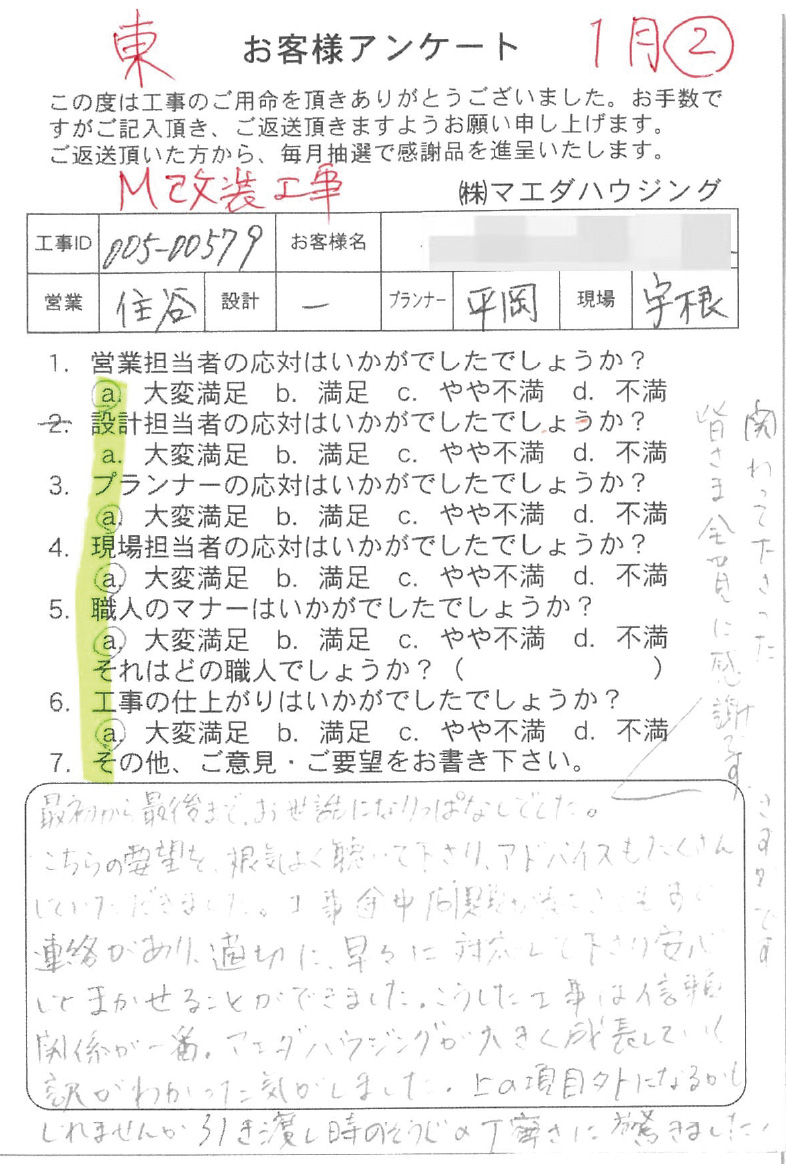 東 お客様アンケート 1月②
この度は工事のご用命を頂きありがとうございました。お手数で
すがご記入頂き、ご返送頂きますようお願い申し上げます。
ご返送頂いた方から、毎月抽選で感謝品を進呈いたします。
M改装工事 ㈱マエダハウジング
工事ID 005-00579 お客様名
営業 住谷 設計 — プランナー 平岡 現場 宇根
1. 営業担当者の応対はいかがでしたでしょうか?
a. 大変満足 b. 満足 c. やや不満 d. 不満
2. 設計担当者の応対はいかがでしたでしょうか?
a. 大変満足 b. 満足 c. やや不満 d. 不満
3. プランナーの応対はいかがでしたでしょうか?
a. 大変満足 b. 満足 c. やや不満 d. 不満
4. 現場担当者の応対はいかがでしたでしょうか?
a. 大変満足 b. 満足 c. やや不満 d. 不満
5. 職人のマナーはいかがでしたでしょうか?
a. 大変満足 b. 満足 c. やや不満 d. 不満
それはどの職人でしょうか?( )
6. 工事の仕上がりはいかがでしたでしょうか?
a. 大変満足 b. 満足 c. やや不満 d. 不満
7. その他、ご意見・ご要望をお書き下さい。
関わって下さった
皆さま全員に感謝です。
最初から最後まで、お世話になりっぱなしでした。
こちらの要望を、根気よく聴いて下さり、アドバイスもたくさん
していただきました。工事途中問題が
連絡があり、適切に、早々に対応して下さり安心
してまかせることができました。こうした工事は信頼
関係が一番。マエダハウジングが大きく成長していく
訳がわかった気がしました。上の項目外になるかも
しれませんが引き渡し時のそうじの丁寧さに驚きました。
さすがです